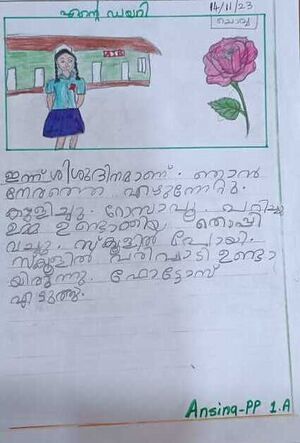 എന്റെ ഡയറി
14/11/23
ചൊവ്വ
ഇന്ന് ശിശുദിനമാണ്. ഞാൻ
നേരത്തെ എഴുന്നേറ്റു.
കുളിച്ചു. റോസാപ്പൂ പറിച്ചു
ഉമ്മ ഉണ്ടാക്കിയ തൊപ്പി
വച്ചു. സ്കൂളിൽ പോയി.
സ്കൂളിൽ പരിപാടി ഉണ്ടാ
യിരുന്നു. ഫോട്ടോസ്
എടുത്തു.
Ansina-PP 1.A